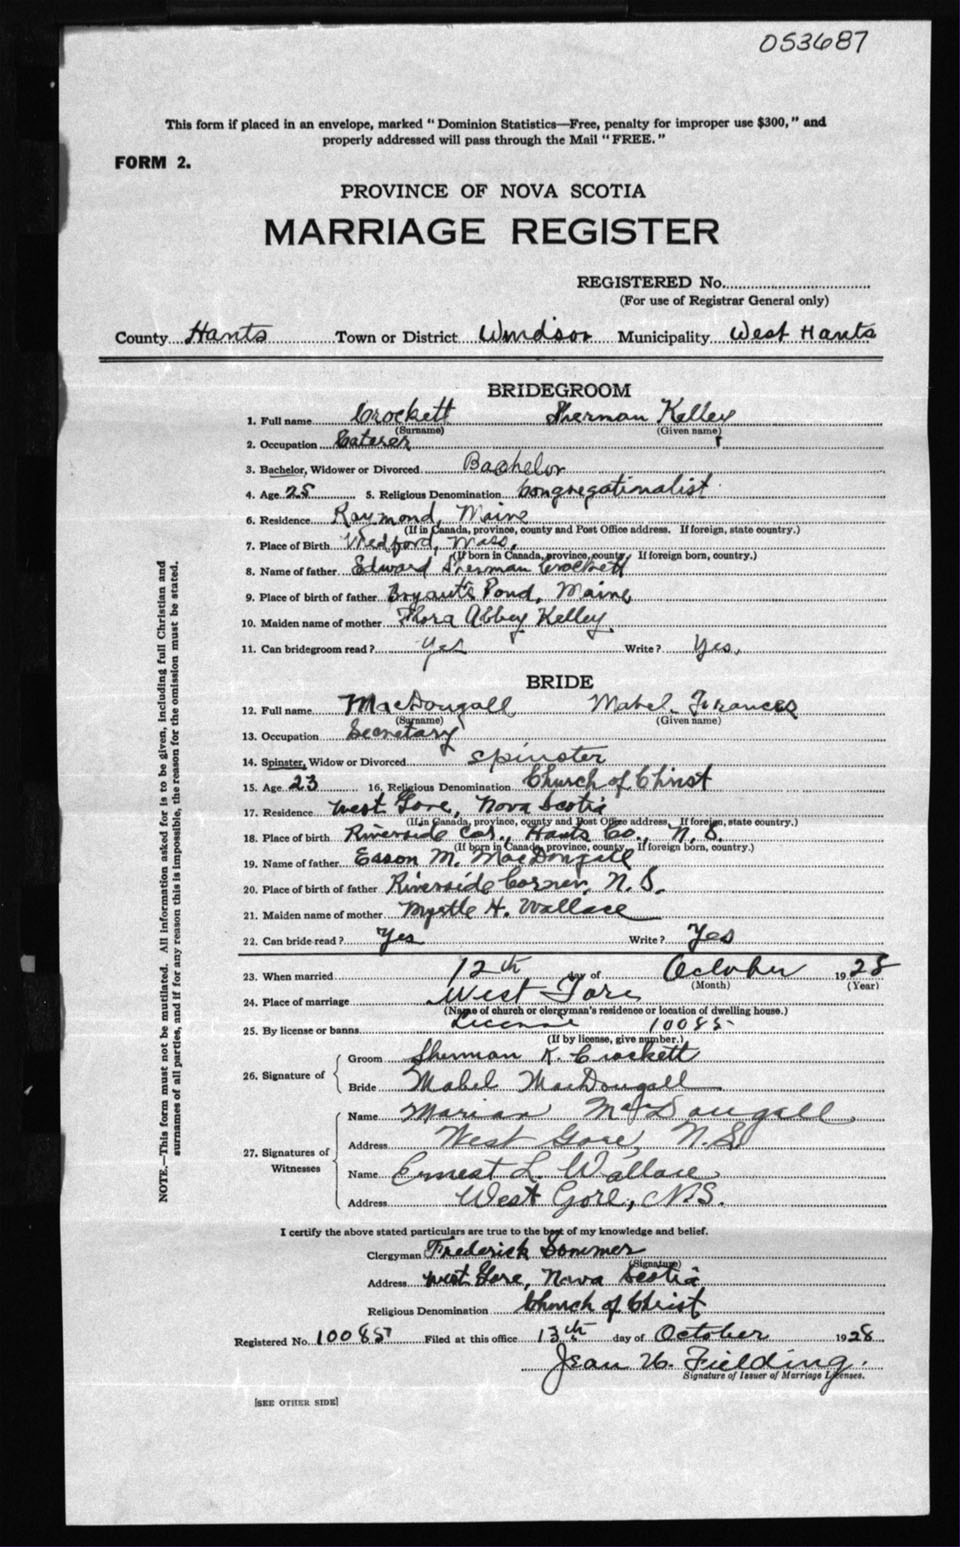 053687
This form if placed in an envelope, marked "Dominion Statistics—Free, penalty for improper use $300," and
properly addressed will pass through the Mail "FREE."
FORM 2.
PROVINCE OF NOVA SCOTIA
MARRIAGE REGISTER
REGISTERED No.
(For use of Registrar General only)
County Hants Town or District Windsor Municipality West Hants
BRIDEGROOM
1. Full name Crockett Sherman Kelley
(Surname) (Given name)
2. Occupation Caterer
3. Bachelor, Widower or Divorced Bachelor
4. Age 25 5. Religious Denomination Congregationalist
6. Residence Raymond, Maine
(If in Canada, province, county and Post Office address. If foreign, state country.)
7. Place of Birth Medford, Mass.
(If born in Canada, province, county. If foreign born, country.)
8. Name of father Edward Sherman Crockett
9. Place of birth of father Bryant's Pond, Maine
10. Maiden name of mother Flora Abbey Kelley
11. Can bridegroom read? yes Write? Yes.
BRIDE
12. Full name MacDougall Mabel Frances
(Surname) (Given name)
13. Occupation Secretary
14. Spinster, Widow or Divorced spinster
15. Age 23 16. Religious Denomination Church of Christ
17. Residence West Gore, Nova Scotia
(If in Canada, province, county and Post Office address. If foreign, state country.)
18. Place of birth Riverside Cor., Hants Co., N.S.
(If born in Canada, province, county. If foreign born, country.)
19. Name of father Esson M. MacDougall
20. Place of birth of father Riverside Corner, N.S.
21. Maiden name of mother Myrtle H. Wallace
22. Can bride read? Yes Write? Yes
23. When married 12th day of October 1928
(Month) (Year)
24. Place of marriage West Gore
(Name of church or clergyman's residence or location of dwelling house.)
25. By license or banns License 10085
(If by license, give number.)
26. Signature of Groom Sherman K. Crockett
Bride Mabel MacDougall
27. Signatures of Witnesses Name Marian MacDougall
Address West Gore, N.S.
Name Ernest L. Wallace
Address West Gore, N.S.
I certify the above stated particulars are true to the best of my knowledge and belief.
Clergyman Frederick Sommer
(Signature)
Address West Gore, Nova Scotia
Religious Denomination Church of Christ
Registered No. 10085 Filed at this office 13th day of October 1928
Jean W. Fielding.
Signature of Issuer of Marriage Licenses.
[SEE OTHER SIDE]
NOTE.—This form must not be mutilated. All information asked for is to be given, including full Christian and
surnames of all parties, and if for any reason this is impossible, the reason for the omission must be stated.